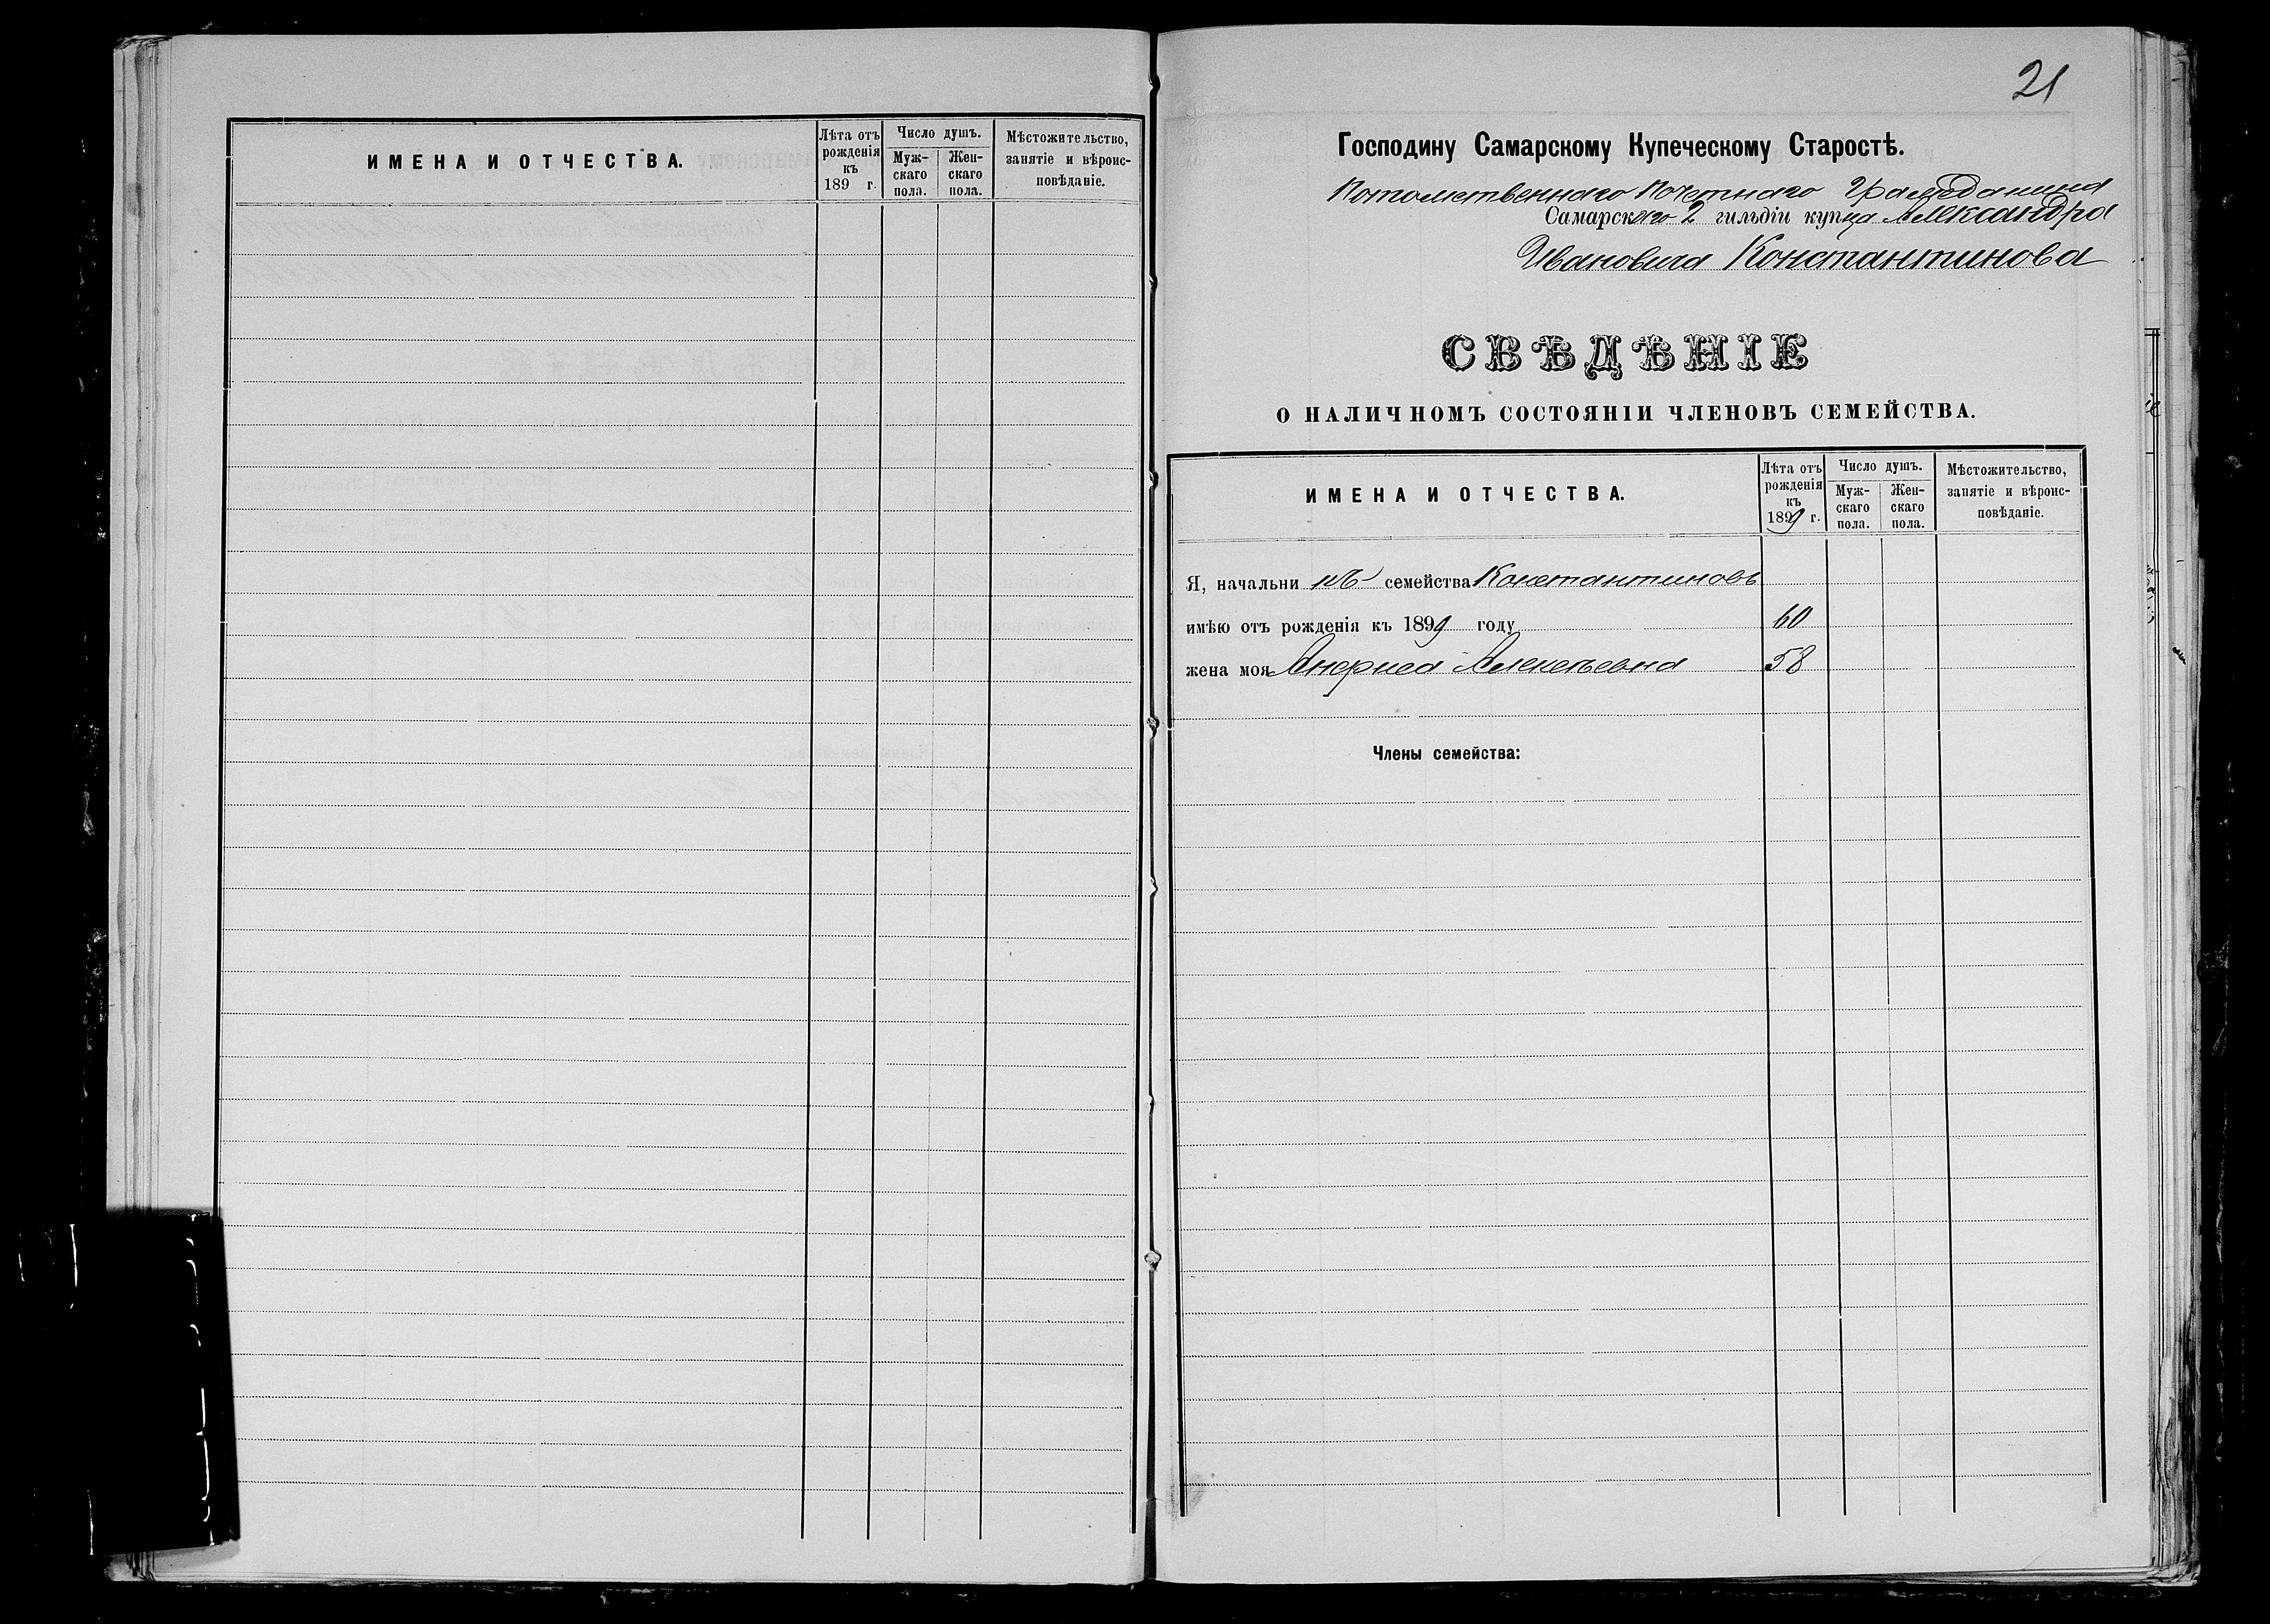 ИМЕНА И ОТЧЕСТВА.
Лѣта отъ рожденія къ 189 г.
Число душъ.
Мужскаго пола.
Женскаго пола.
Мѣстожительство, занятіе и вѣроисповѣданіе.
21
Господину Самарскому Купеческому Старостѣ.
Потомственнаго Почетнаго Гражданина
Самарскаго 2 гильдіи купца Александра
Ивановича Константинова
СВѢДѢНІЕ
О НАЛИЧНОМЪ СОСТОЯНІИ ЧЛЕНОВЪ СЕМЕЙСТВА.
ИМЕНА И ОТЧЕСТВА.
Лѣта отъ рожденія къ 1899 г.
Число душъ.
Мужскаго пола.
Женскаго пола.
Мѣстожительство, занятіе и вѣроисповѣданіе.
Я, начальникъ семейства Константиновъ
имѣю отъ рожденія къ 1899 году 60
жена моя Алексѣевна 58
Члены семейства: